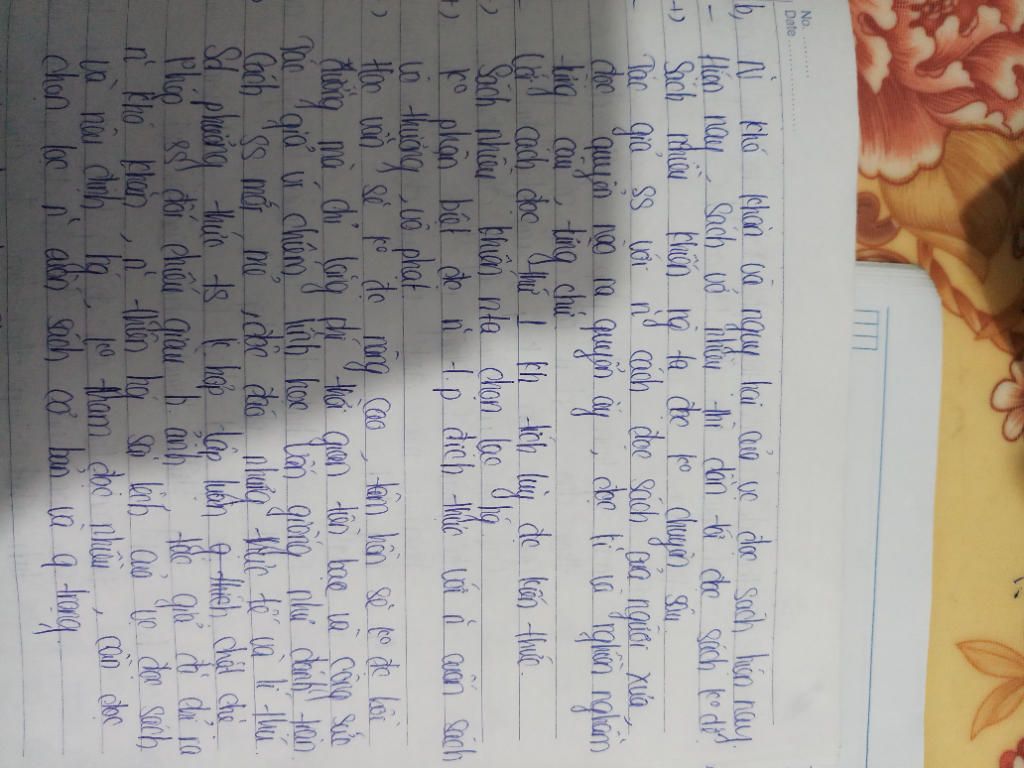 No.
Date
b, N~ khó khăn và nguy hại của vc đọc sách hiện nay.
- Hiện nay, sách vở nhiều thì dẫn tới đọc sách ko dễ
+) Sách nhiều khiến ng ta đọc ko chuyên sâu
- Tác giả ss với n~ cách đọc sách của người xưa,
đọc quyển nào ra quyển ấy, đọc kĩ và nghiền ngẫm
từng câu, từng chữ
Với cách đọc thứ 1 kh tích lũy đc kiến thức
+) Sách nhiều khiến n ta chọn lạc h
+) ko phân biệt đc n~ t.p đích thực với n~ cuốn sách
vô thưởng, vô phạt
Học vấn sẽ ko đc nâng cao, tâm hồn sẽ ko đc bồi
đắng mà chỉ lãng phí thời gian tiền bạc và công sức
Tác giả ví chiếm lĩnh học vấn giống như đánh trận
Cách ss mới mẻ, độc đáo nhưng thực tế và lí thú.
Sd phương thức ts k hợp lập luận g thích chặt chẽ
phép ss đối chiếu giàu h ảnh tác giả đã chỉ ra
n~ khó khăn, n~ thiên hướng sai lệch của vc đọc sách
và nêu định hg, ko tham đọc nhiều, cần đọc
chọn lọc n~ cuốn sách cơ bản và q trọng